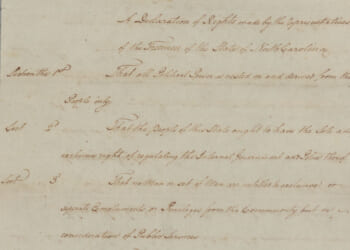 A Declaration of Rights made by the Representatives
of the Freemen of the State of North Carolina
Section the 1st That all Political Power is vested in and derived, from the
People only.
Sect 2d That the People of this State ought to have the Sole and
exclusive right of regulating the Internal Government and Police thereof
Sect 3d That no Man or set of Men are entitled to exclusive or
separate Emoluments or Privileges from the Community but in
consideration of Public Services